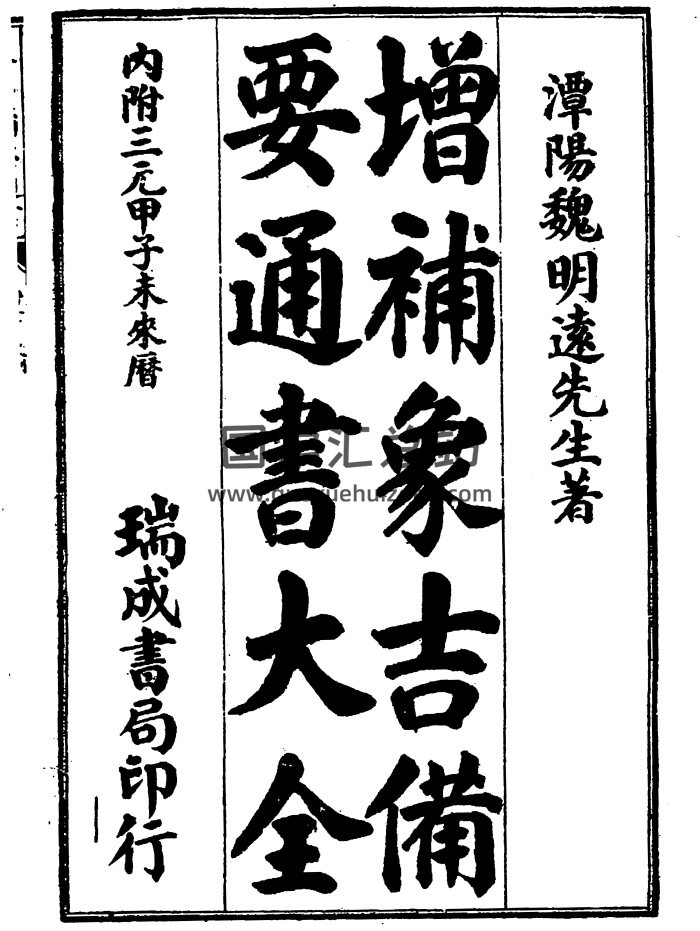 潭陽魏明遠先生著
增補象吉備
要通書大全
內附三元甲子未來曆
瑞成書局印行